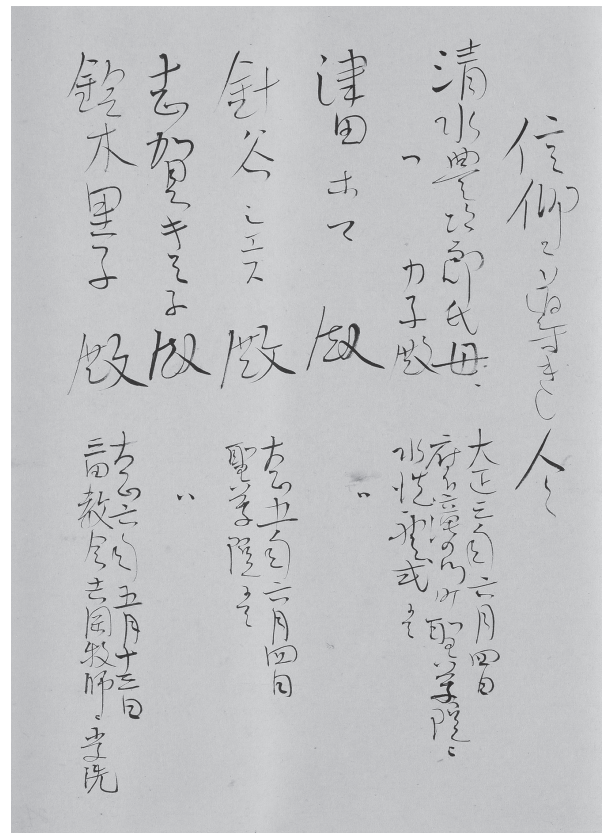 信仰ニ導きし人々
清水豊次郎氏母、
〃 カ子殿
大正三年六月四日
府下滝の川町聖学院ニ
水洗礼式ニて
津田ホマ殿
〃
針谷シエス殿
大正五年六月四日
聖学院ニて
志賀き子殿
〃
鈴木里子殿
大正六年五月十三日
三田教会吉岡牧師ニ受洗